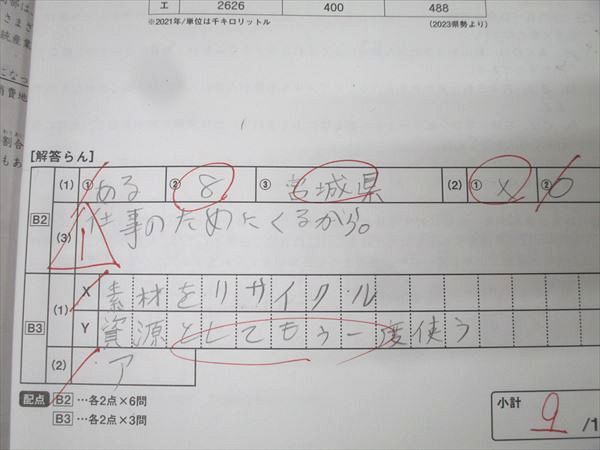 エ 2626 400 488
※2021年/単位は千キロリットル (2023県勢より)
さまざ
統産業
になつ
消費地
割合
もあ
[解答らん]
B2 (1) ① ある ② 8 ③ 宮城県 (2) ① × ② ○
(3) 仕事のためにくるから。
B3 (1) X 素材をリサイクル
Y 資源としてもう一度使う
(2) ア
配点 B2 …各2点×6問
B3 …各2点×3問
小計 9 /1